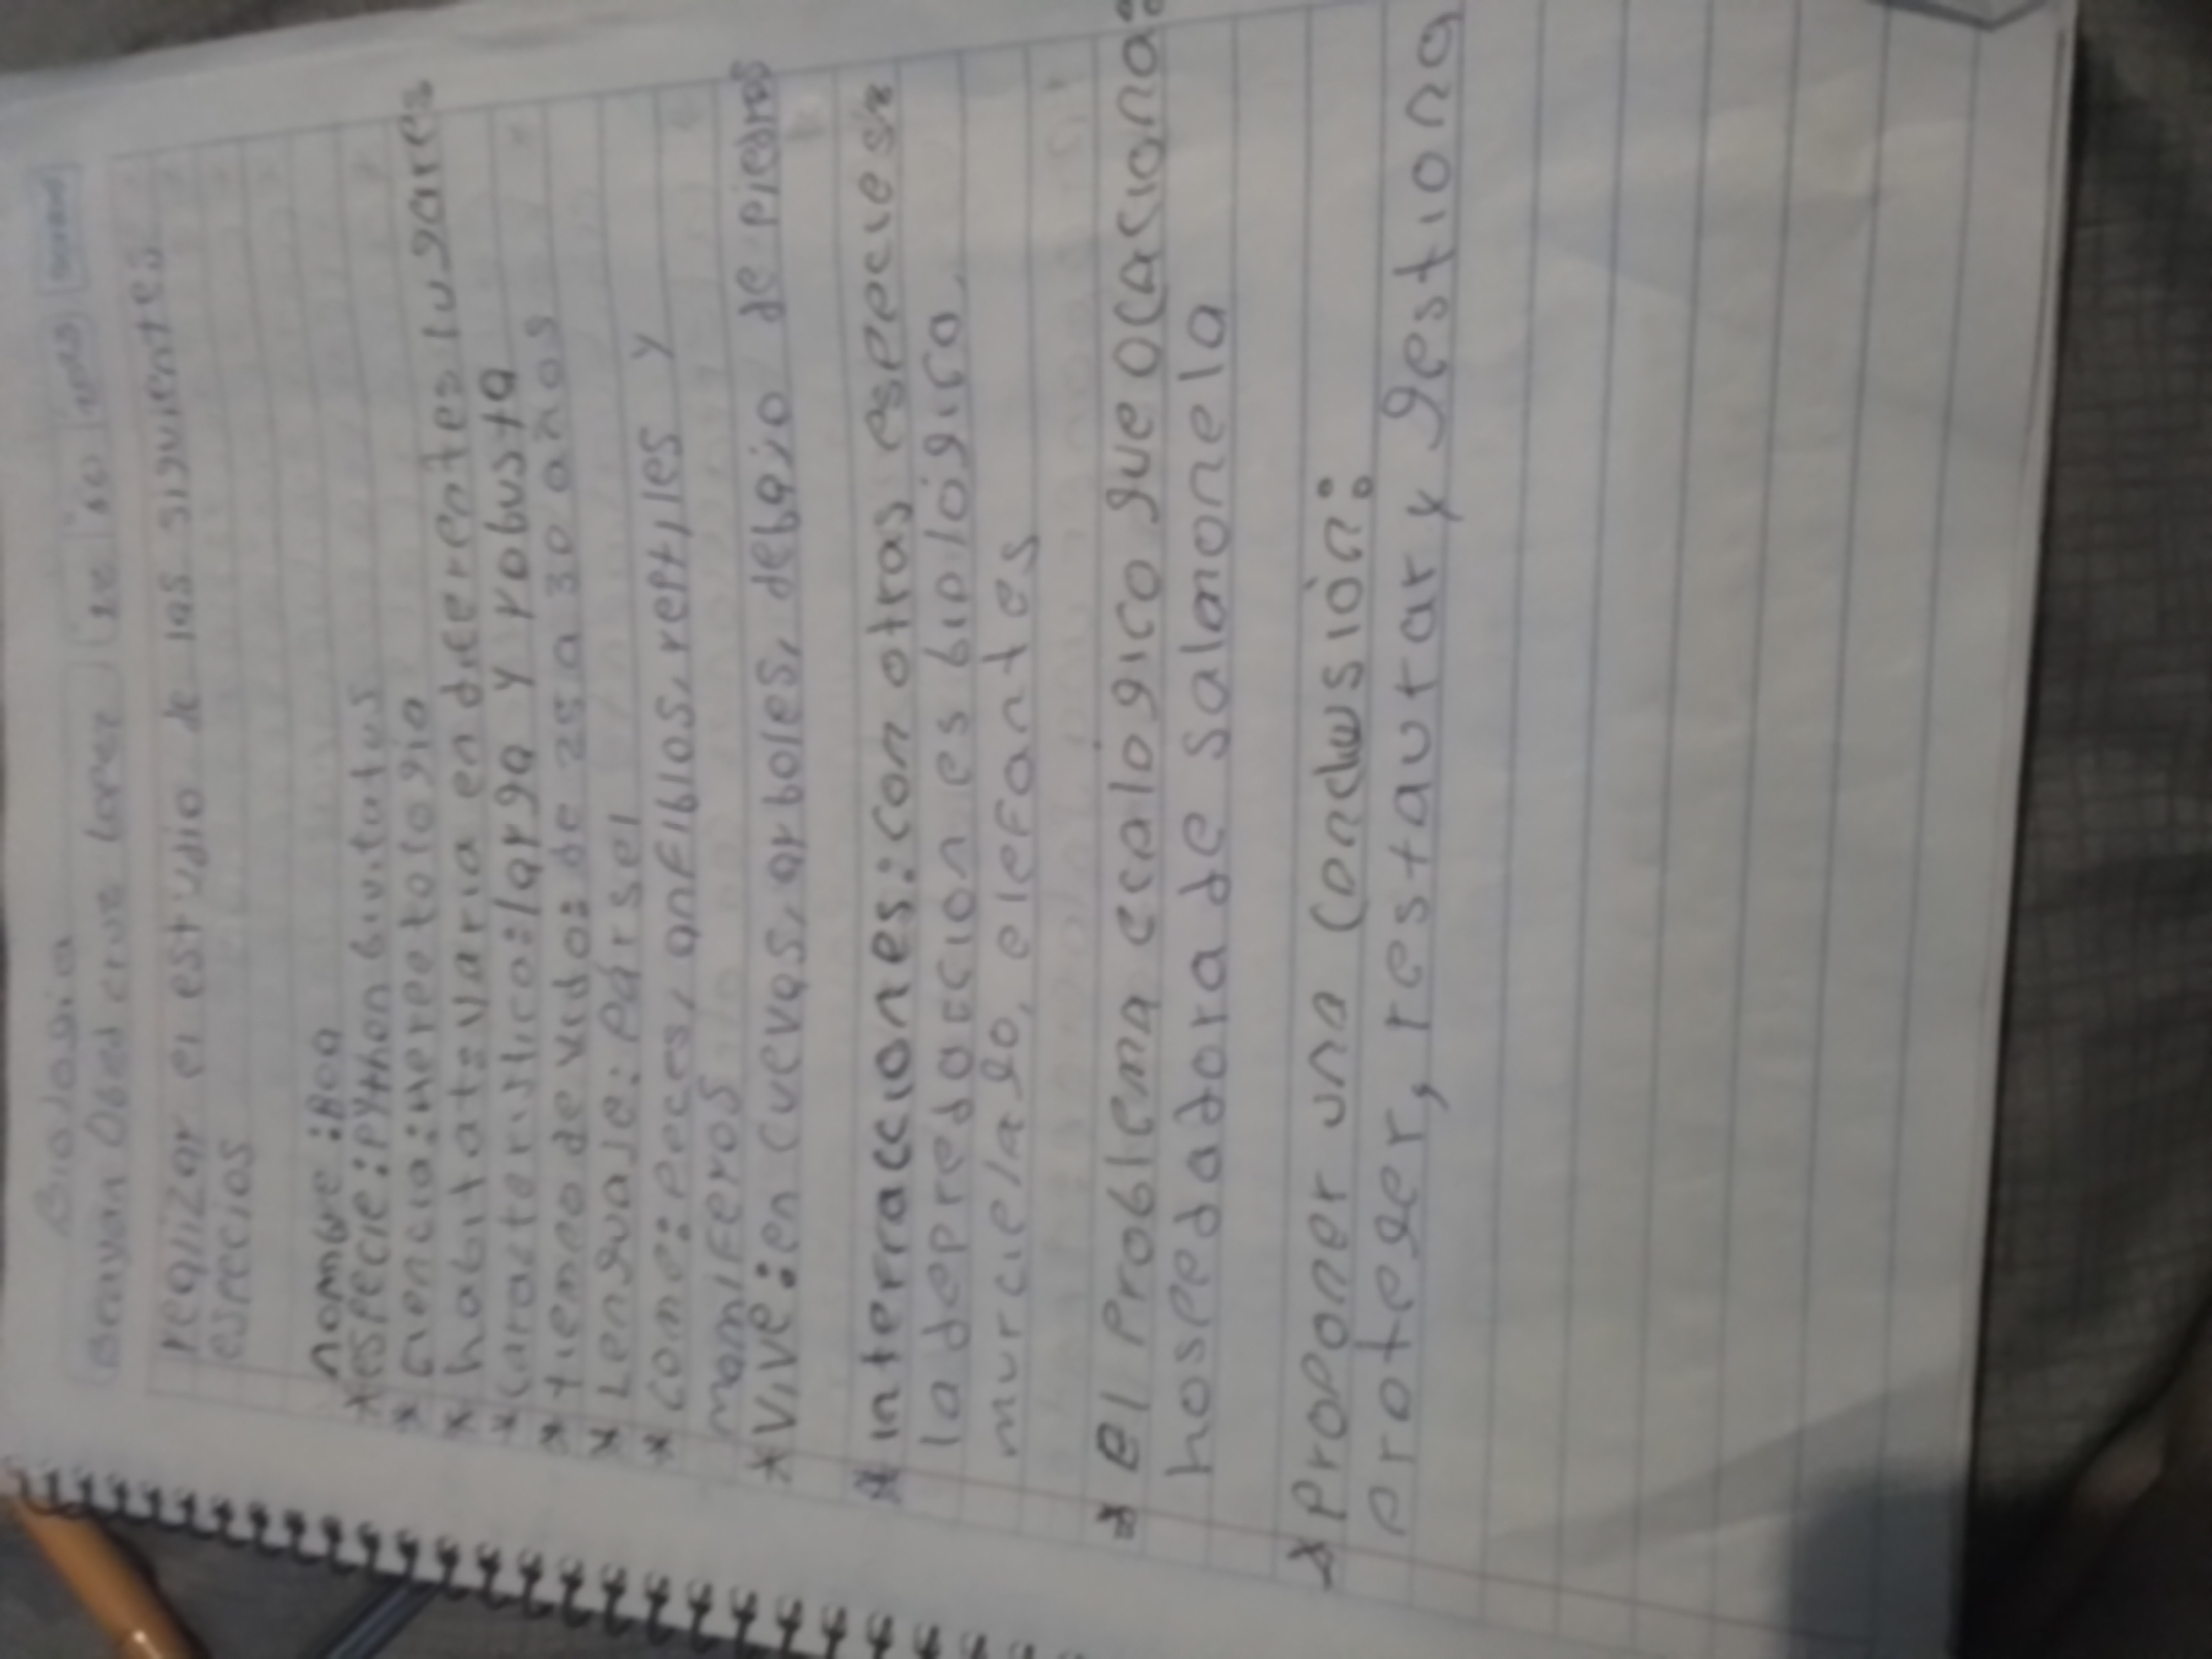 Biología
Brayan Obed cruz Lopez
realizar el estudio de las siguientes
especies
nombre : Boa
* especie : python bivitatus
* ciencia : Herpetologia
* habitat : varia en diferentes lugares
* caracteristica : larga y robusta
* tiempo de vida : de 25 a 30 años
* Lenguaje : pársel
* come : peces, anfibios, reptiles y
mamiferos
* Vive : en cuevas, arboles, debajo de piedras
* interacciones : con otras especies
la depredaccion es biológica,
murcielago, elefantes
* El problema ecologico que ocaciona :
hospedadora de salmonela
* Proponer una conclusión :
proteger, restautar y gestiona